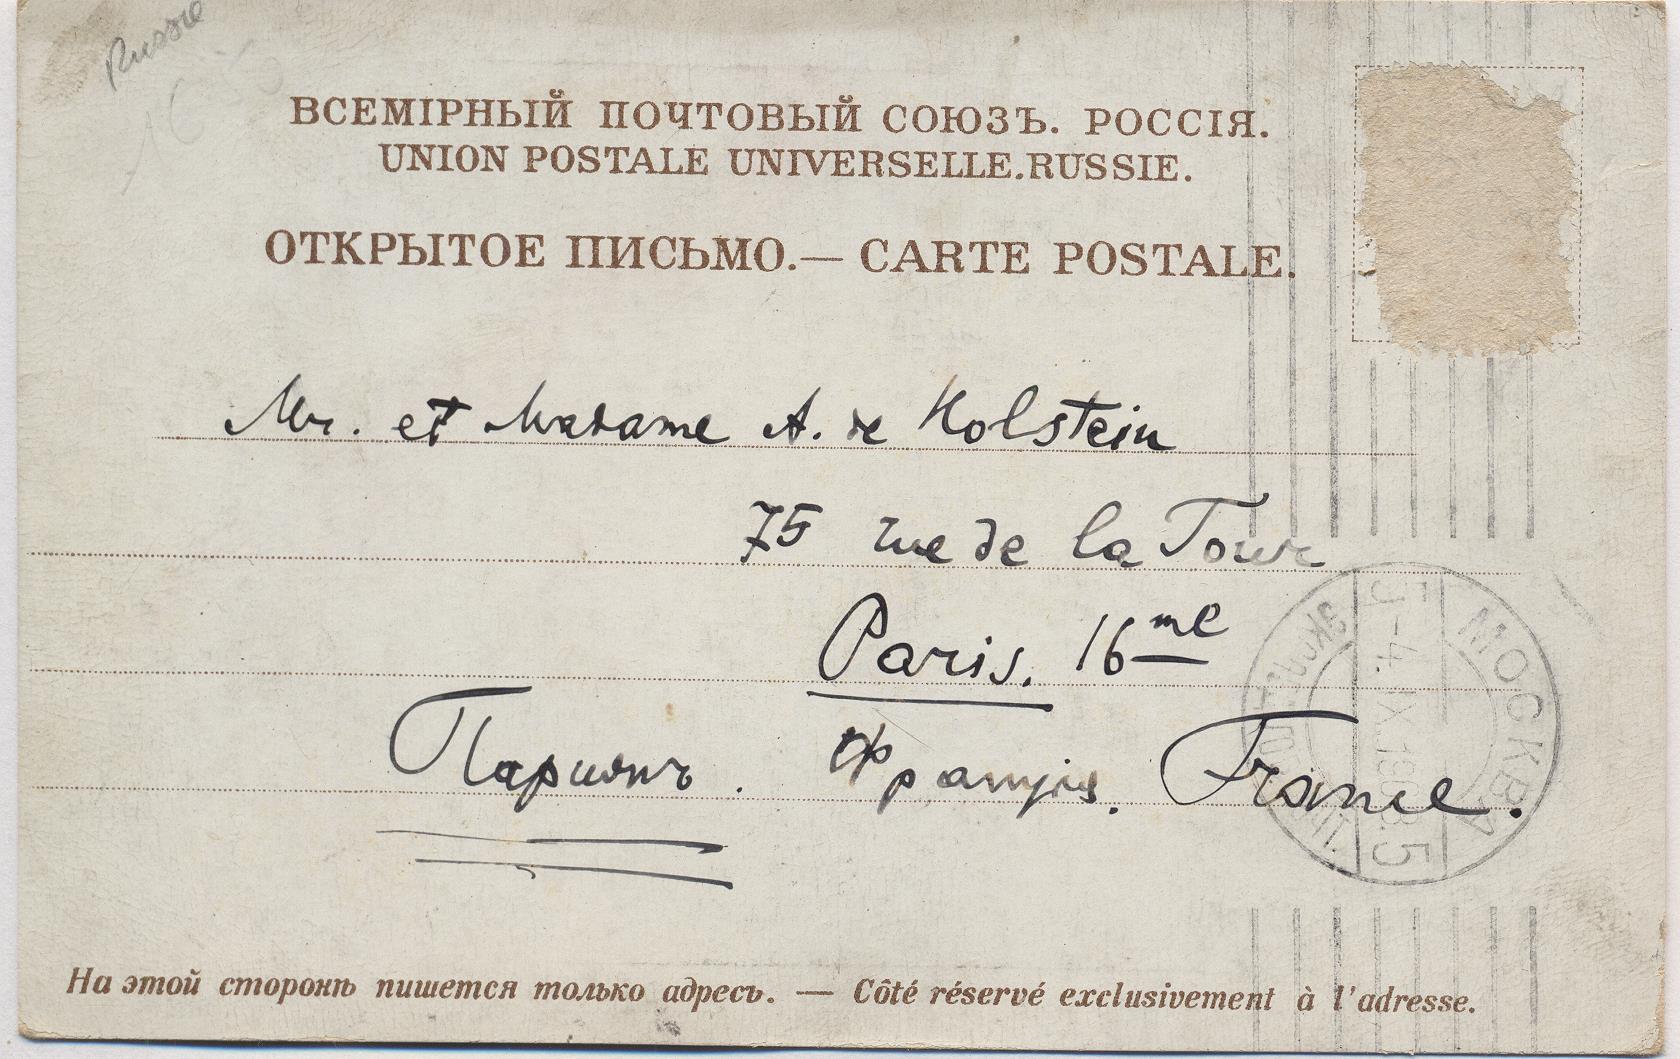 Russie
ВСЕМІРНЫЙ ПОЧТОВЫЙ СОЮЗЪ. РОССІЯ.
UNION POSTALE UNIVERSELLE. RUSSIE.
ОТКРЫТОЕ ПИСЬМО.— CARTE POSTALE.
Mr. et Madame A. de Holstein
75 rue de la Tour
Paris. 16me
Парижъ. Франція. France.
МОСКВА
5
На этой сторонѣ пишется только адресъ. — Côté réservé exclusivement à l'adresse.